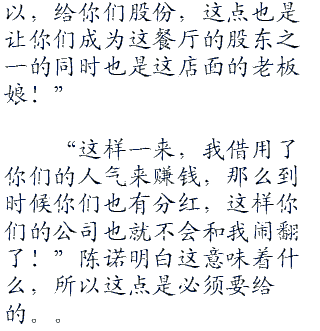 以，给你们股份，这点也是
让你们成为这餐厅的股东之
一的同时也是这店面的老板
娘！”
“这样一来，我借用了
你们的人气来赚钱，那么到
时候你们也有分红，这样你
们的公司也就不会和我闹翻
了！”陈诺明白这意味着什
么，所以这点是必须要给
的。。